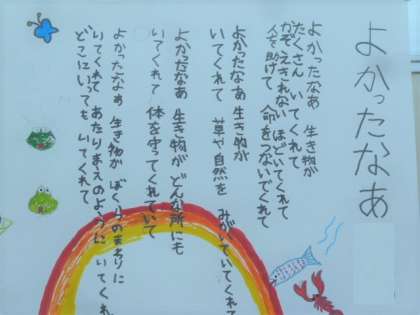 よかったなあ
よかったなあ 生き物が
たくさん いてくれて
かぞえきれない ほどいてくれて
人を助けて 命をつないでくれて
よかったなあ 生き物が
いてくれて 草や自然を みがいていてくれて
よかったなあ 生き物が どんな所にも
いてくれて 体を守ってくれていて
よかったなぁ 生き物が ぼくらのまわりに
いてくれて あたりまえのように いてくれ
どこにいっても いてくれて